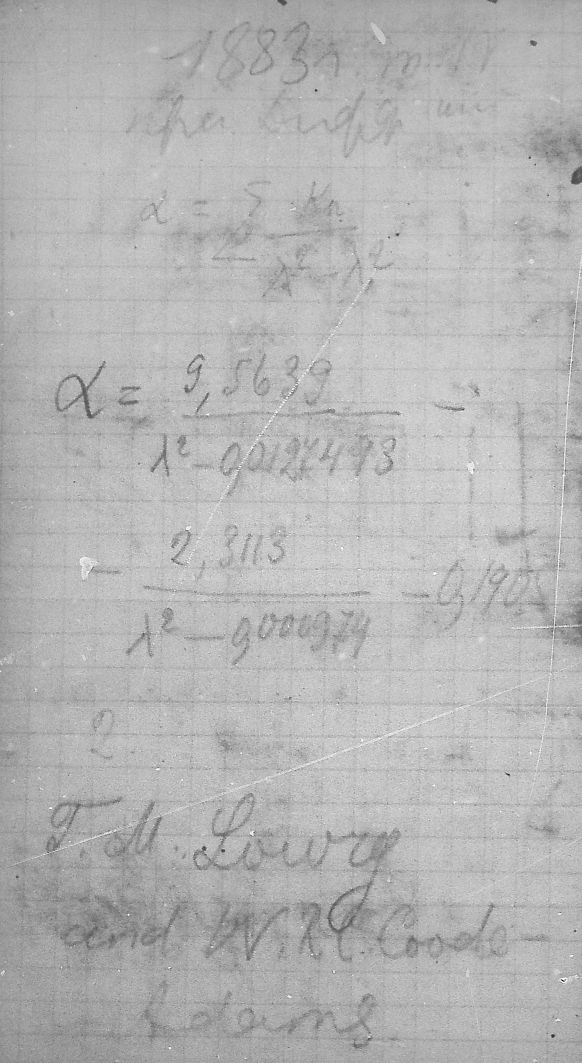 1883г.
α = Σ Kn / λ² - λ²
α = 9,5639 / λ² - 0,0127493 -
- 2,3113 / λ² - 0,000974 - 0,1905
2.
T. M. Lowry
and W. R. C. Coode-
Adams.